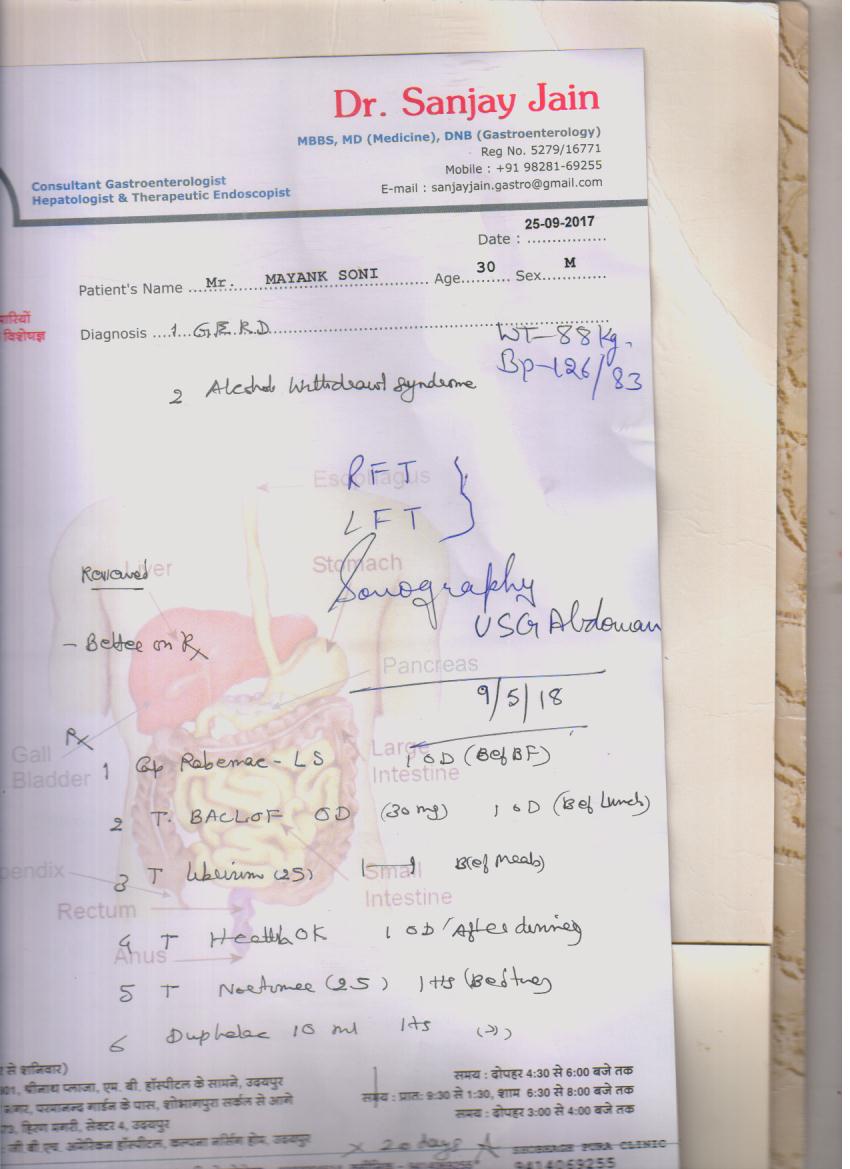 Dr. Sanjay Jain
MBBS, MD (Medicine), DNB (Gastroenterology)
Reg No. 5279/16771
Mobile : +91 98281-69255
E-mail : sanjayjain.gastro@gmail.com
Consultant Gastroenterologist
Hepatologist & Therapeutic Endoscopist
25-09-2017
Date : ................
Patient's Name ....Mr. MAYANK SONI.... Age..30.. Sex..M..
विशेषज्ञ
Diagnosis ....1. G.E.R.D
WT-88 Kg.
Bp-126/83
2 Alcohol Withdrawl Syndrome
RFT
LFT
Esophagus
Liver
Stomach
Reviewed
Sonography
USG Abdoman
- Better on Rx
Pancreas
9/5/18
Rx
Gall
Bladder
Large
Intestine
1 Cap Rabemac - LS 1 OD (Bef BF)
2 T. BACLOF OD (30 mg) 1 OD (Bef Lunch)
3 T (25) 1—1 Bef Meals
Small
Intestine
pendix
Rectum
4 T HealthOK 1 OD After
Anus
5 T (25) 1 Hs
6 Duphalac 10 ml 1 Hs
से शनिवार)
समय : दोपहर 4:30 से 6:00 बजे तक
श्रीनाथ प्लाजा, एम. बी. हॉस्पीटल के सामने, उदयपुर
समय : प्रातः 9:30 से 1:30, शाम 6:30 से 8:00 बजे तक
नगर, परमानन्द गार्डन के पास, शोभागपुरा सर्कल से आगे
समय : दोपहर 3:00 से 4:00 बजे तक
हिरण मगरी, सेक्टर 4, उदयपुर
जी.बी.एच. अमेरिकन हॉस्पीटल, कल्पना नर्सिंग होम, उदयपुर
x 20 days
PURA CLINIC